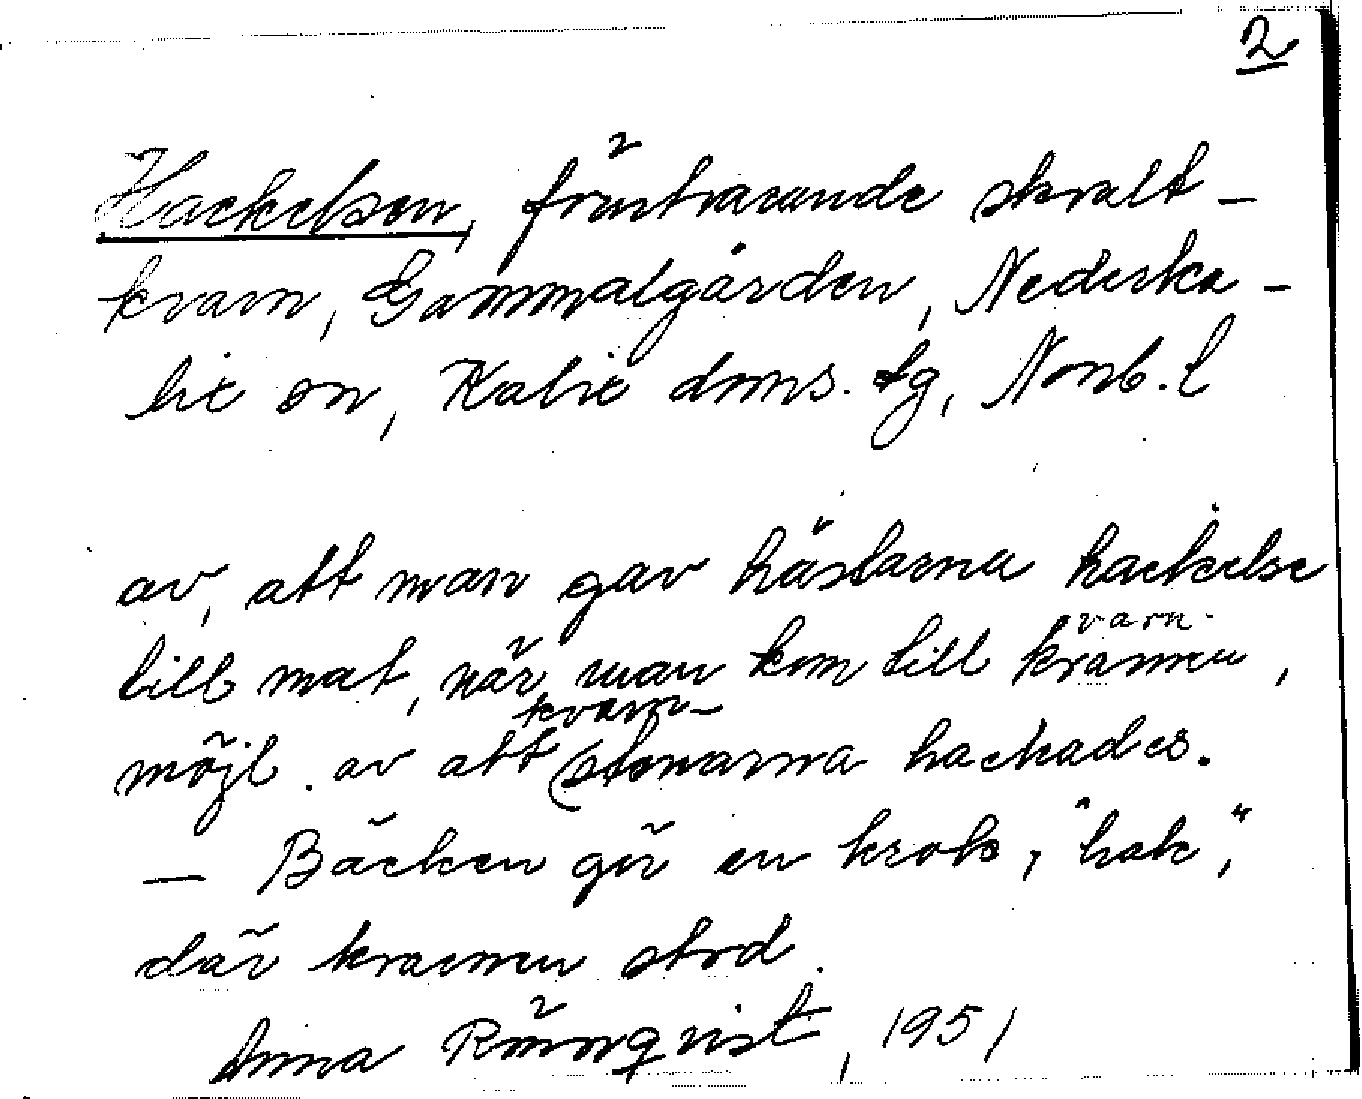 2
Hackelsen, försvarande skvalt-
kvarn, Gammalgården, Nederka-
lix sn, Kalix doms. tg, Norrb. l
av, att man gav hästarna hackelse
till mat, när man kom till kvarnen,
varn
kvarn-
möjl. av att (stenarna hackades.
— Bäcken gör en krok, "hak",
där kvarnen stod.
Anna Rönnqvist, 1951